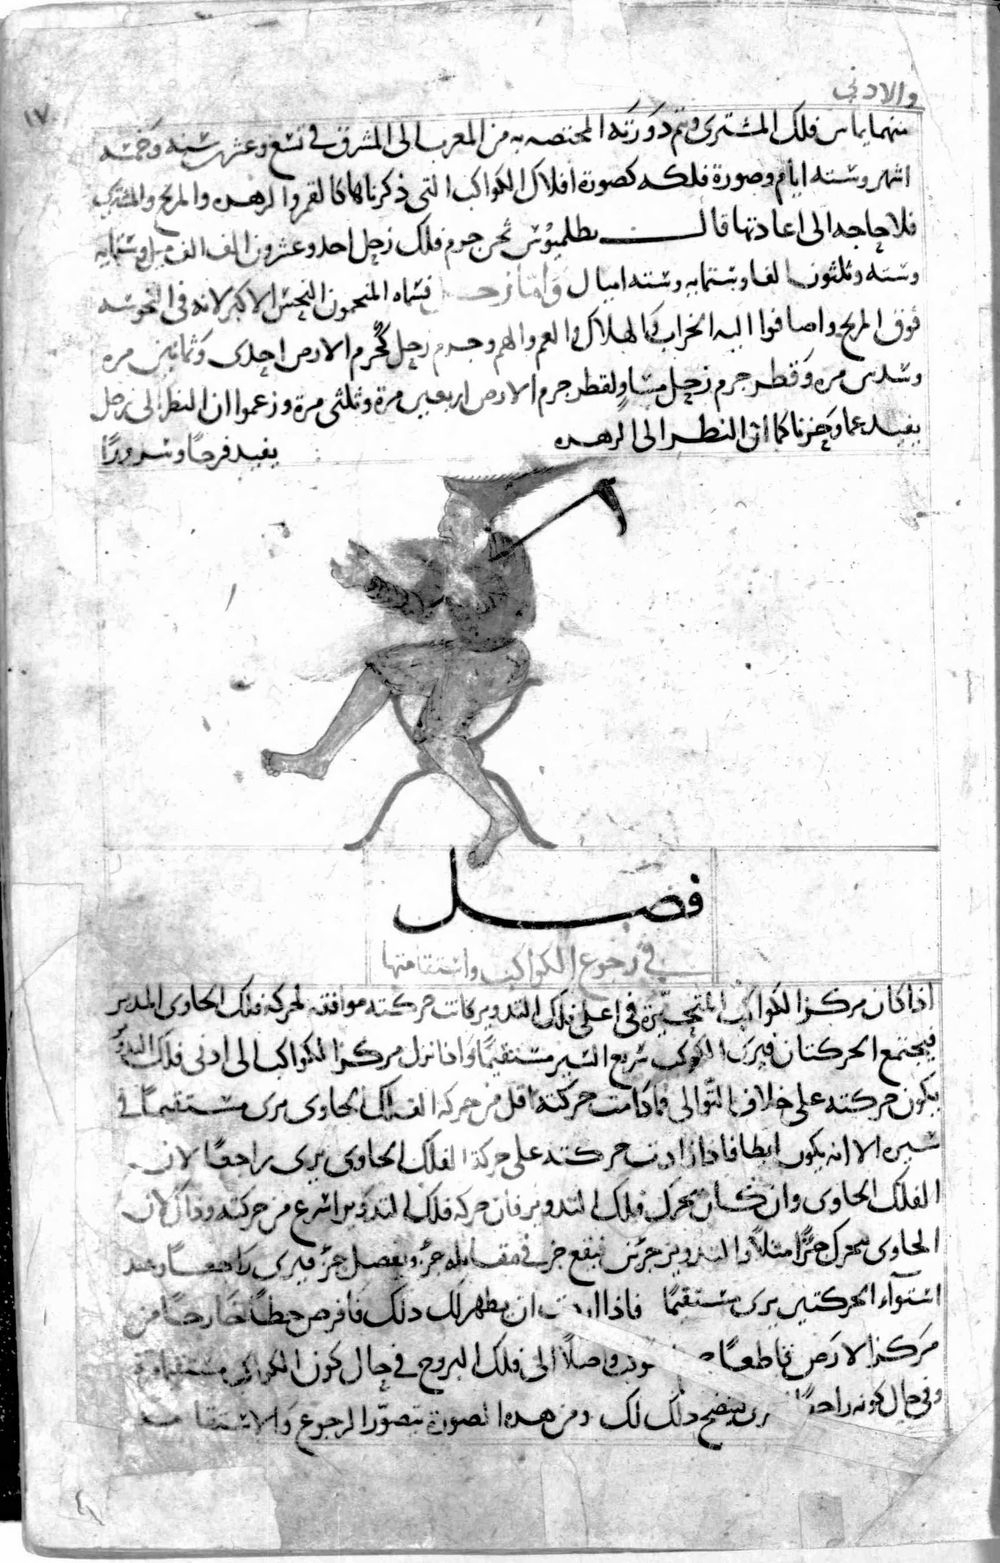 ١٧
والادنى
منهما يماس فلك المشترى ويتم دورته المختصه به من المغرب الى المشرق فى تسع وعشرين سنه وخمسه
اشهر وسته ايام وصورة فلكه كصورة افلاك الكواكب التى ذكرناها كالقمر والزهره والمريخ والمشترى
فلا حاجه الى اعادتها قال بطلميوس ثخن جرم فلك زحل احد وعشرون الف الف ميل وستمايه
وسته وثلثون الفا وستمايه وسته اميال واما زحل فسماه المنجمون النحس الاكبر لانه فى النحوسه
فوق المريخ واضافوا اليه الخراب والهلاك والغم والهم وجرم زحل كجرم الارض احدى وثمانين مره
وسدس مره وقطر جرم زحل مساو لقطر جرم الارض اربعين مرة وثلثى مرة وزعموا ان النظر الى زحل
يفيد غما وحزنا كما ان النظر الى الزهره يفيد فرحا وسرورا
فصل
فى رجوع الكواكب واستقامتها
اذا كان مركز الكواكب المتحيرة فى اعلى فلك التدوير كانت حركته موافقه لحركة فلك الحاوى المدير
فيجتمع الحركتان فيرى الكوكب سريع السير مستقيما واذا نزل مركز الكواكب الى ادنى فلك التدوير
يكون حركته على خلاف التوالى فما دامت حركته اقل من حركة الفلك الحاوى يرى مستقيما فى
سيره الا انه يكون ابطا فاذا زادت حركته على حركة الفلك الحاوى يرى راجعا لان
الفلك الحاوى وان كان يحرك فلك التدوير فان حركة فلك التدوير اسرع من حركته وذاك لان
الحاوى يتحرك جزءا مثلا والتدوير جزئين فيقع جزء فى مقابله جزء ويفضل جزء فيرى راجعا وعند
استواء الحركتين يرى مستقيما فاذا اردت ان يظهر لك ذلك فافرض خطا خارجا من
مركز الارض قاطعا واصلا الى فلك البروج فى حال كون الكواكب مستقيما
وفى حال كونه راجعا يتضح ذلك لك ومن هذه الصورة يتصور الرجوع والاستقامه